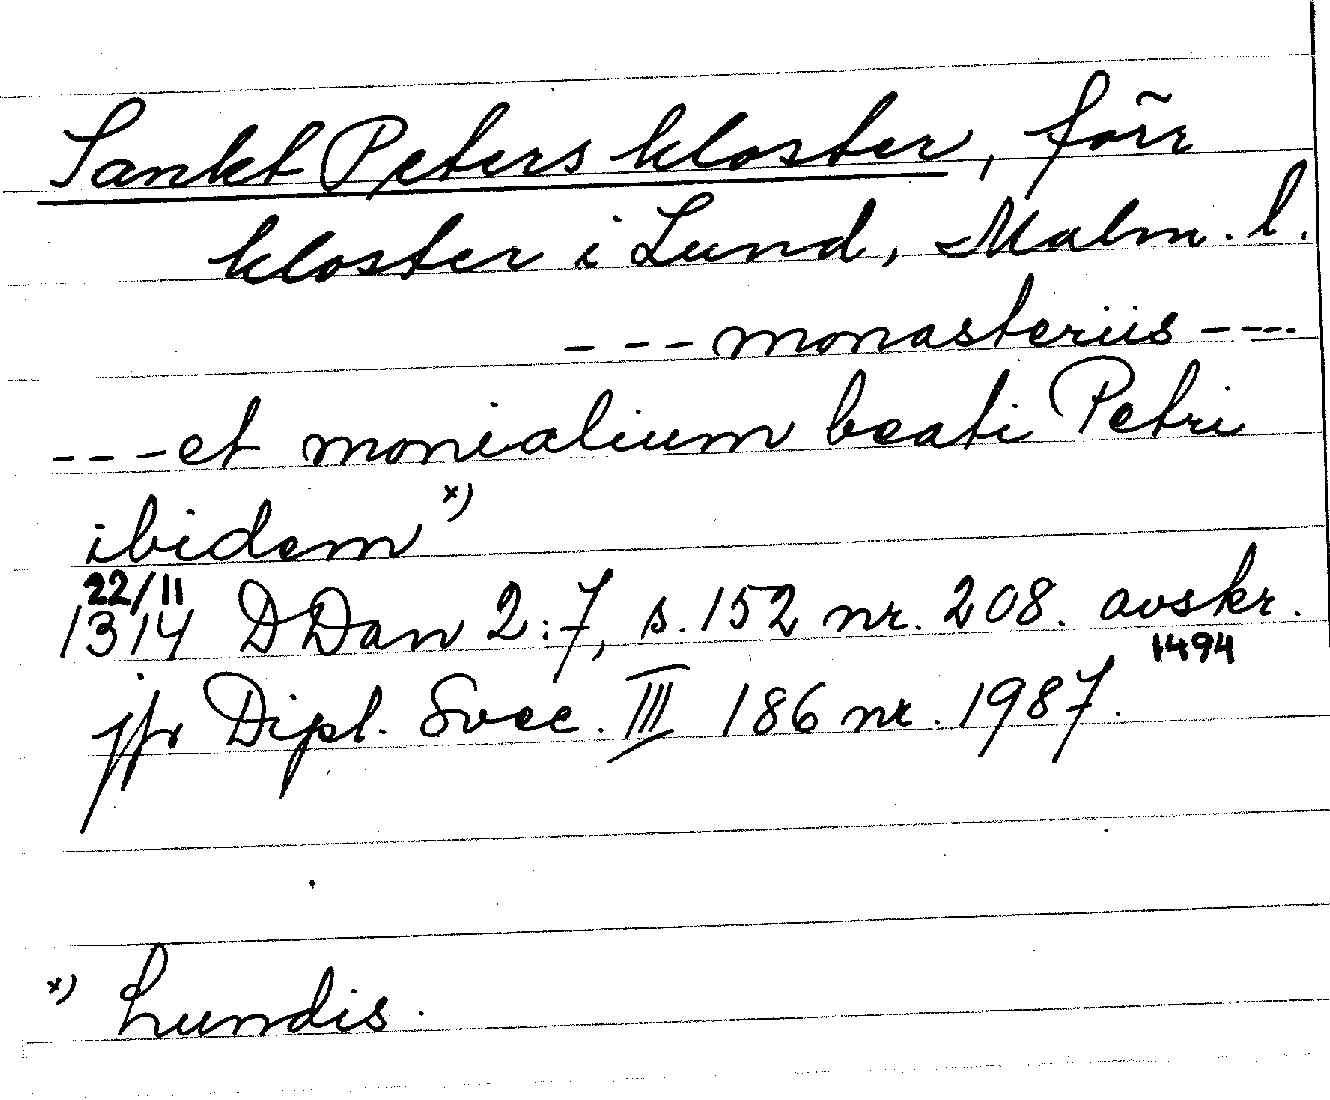 Sankt Peters kloster, förr
kloster i Lund, Malm. l.
--- monasteriis ---
--- et monialium beati Petri
ibidem x)
22/11
1314 DDan 2:7, s. 152 nr. 208. avskr.
1494
jfr Dipl. Svec. III 186 nr. 1987.
x) Lundis.